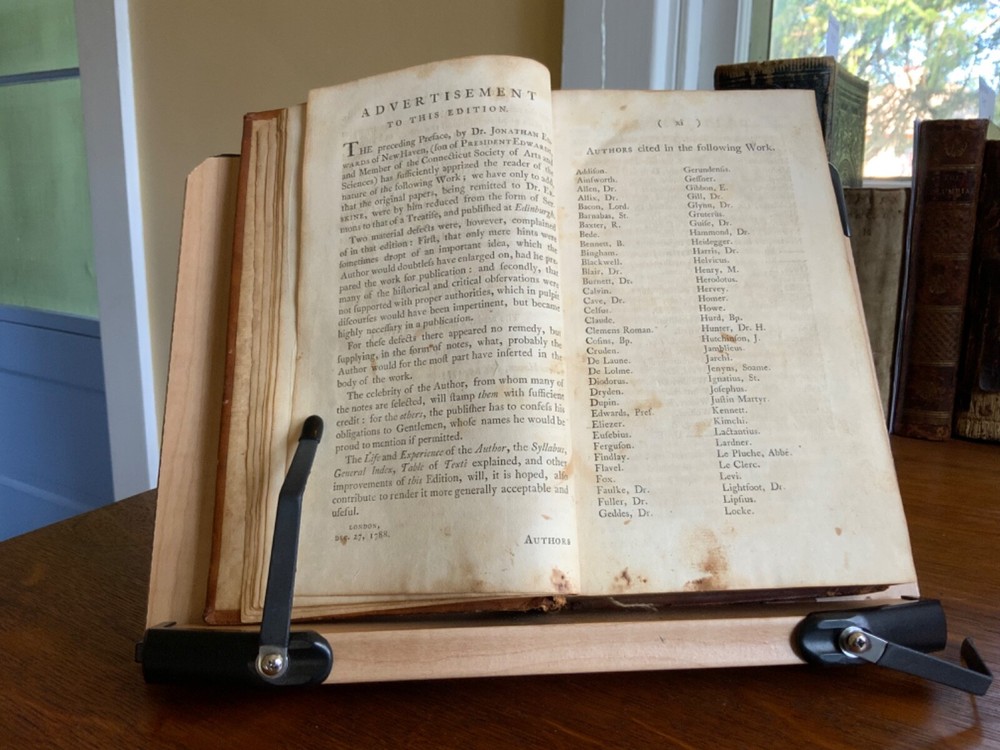 ADVERTISEMENT
TO THIS EDITION.
THE preceding Preface, by Dr. JONATHAN ED-
WARDS of New Haven, (ſon of PRESIDENT EDWARDS,
and Member of the Connecticut Society of Arts and
Sciences) has ſufficiently apprized the reader of the
nature of the following Work; we have only to add,
that the original papers, being remitted to Dr. ER-
SKINE, were by him reduced from the form of Ser-
mons to that of a Treatiſe, and publiſhed at Edinburgh.
Two material defects were, however, complained
of in that edition: Firſt, that only mere hints were
ſometimes dropt of an important idea, which the
Author would doubtleſs have enlarged on, had he pre-
pared the work for publication: and ſecondly, that
many of the hiſtorical and critical obſervations were
not ſupported with proper authorities, which in pulpit
diſcourſes would have been impertinent, but became
highly neceſſary in a publication.
For theſe defects there appeared no remedy, but
ſupplying, in the form of notes, what, probably the
Author would for the moſt part have inſerted in the
body of the work.
The celebrity of the Author, from whom many of
the notes are ſelected, will ſtamp them with ſufficient
credit: for the others, the publiſher has to confeſs his
obligations to Gentlemen, whoſe names he would be
proud to mention if permitted.
The Life and Experience of the Author, the Syllabus,
General Index, Table of Texts explained, and other
improvements of this Edition, will, it is hoped, alſo
contribute to render it more generally acceptable and
uſeful.
LONDON,
Dec. 27, 1788.
AUTHORS
( xi )
AUTHORS cited in the following Work.
Addiſon.
Ainſworth.
Allen, Dr.
Allix, Dr.
Bacon, Lord.
Barnabas, St.
Baxter, R.
Bede.
Bennett, B.
Bingham.
Blackwell.
Blair, Dr.
Burnett, Dr.
Calvin.
Cave, Dr.
Celſus.
Claude.
Clemens Roman.
Coſins, Bp.
Cruden.
De Laune.
De Lolme.
Diodorus.
Dryden.
Dupin.
Edwards, Preſ.
Eliezer.
Euſebius.
Ferguſon.
Findlay.
Flavel.
Fox.
Faulke, Dr.
Fuller, Dr.
Geddes, Dr.
Gerundenſis.
Geſſner.
Gibbon, E.
Gill, Dr.
Glynn, Dr.
Gruterus.
Guiſe, Dr.
Hammond, Dr.
Heidegger.
Harris, Dr.
Helvicus.
Henry, M.
Herodotus.
Hervey.
Homer.
Howe.
Hurd, Bp.
Hunter, Dr. H.
Hutchinſon, J.
Jamblicus.
Jarchi.
Jenyns, Soame.
Ignatius, St.
Joſephus.
Juſtin Martyr.
Kennett.
Kimchi.
Lactantius.
Lardner.
Le Pluche, Abbé.
Le Clerc.
Levi.
Lightfoot, Dr.
Lipſius.
Locke.